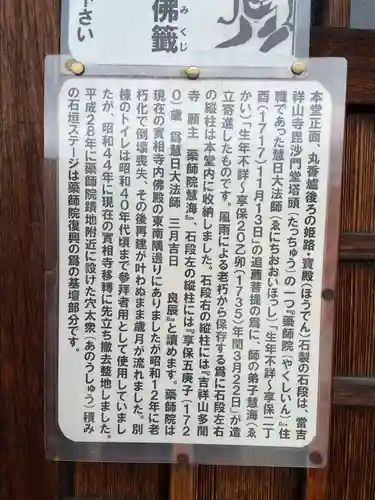 佛籤
みくじ
下さい
本堂正面、丸香爐後ろの姫路・寶殿(ほうでん)石製の石段は、當吉
祥山寺毘沙門堂塔頭(たっちゅう)の一つ『藥師院(やくしいん)』住
職であった慧日大法師(ゑにちおおいほっし)「生年不詳~享保二丁
酉(1717)11月13日」の追薦菩提の爲に、師の弟子慧海(ゑ
かい)「生年不詳~享保20乙卯(1735)年閏3月25日」が造
立寄進したものです。風雨による老朽から保存する爲に石段左右
の縱柱は本堂内に收納しました。石段右の縱柱には『吉祥山多聞
寺 願主 藥師院慧海』、石段左の縱柱には『享保五庚子(172
0)歳 爲慧日大法師 三月吉日 良辰』と讀めます。藥師院は
現在の實相寺内佛殿の東南隅邊りにありましたが昭和12年に老
朽化で倒壞喪失、その後再建が叶わぬまま歳月が流れました。別
棟のトイレは昭和40年代頃まで參拜者用として使用していまし
たが、昭和44年に現在の實相寺移轉に先立ち撤去整地しました。
平成28年に藥師院蹟地附近に設けた穴太衆(あのうしゅう)積み
の石垣ステージは藥師院復興の爲の基壇部分です。